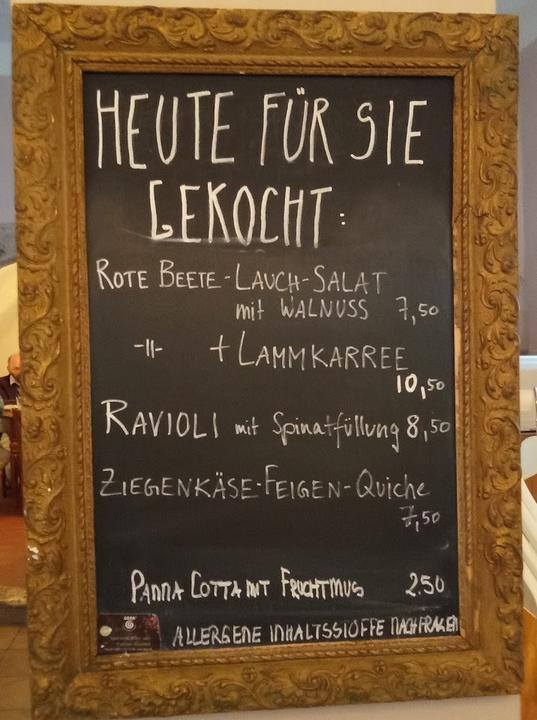 HEUTE FÜR SIE
GEKOCHT:
ROTE BEETE-LAUCH-SALAT
mit WALNUSS 7,50
-||- + LAMMKARREE
10,50
RAVIOLI mit Spinatfüllung 8,50
ZIEGENKÄSE-FEIGEN-Quiche
7,50
PANNA COTTA MIT FRUCHTMUS 2.50
ALLERGENE INHALTSSTOFFE NACHFRAGEN
GEPA